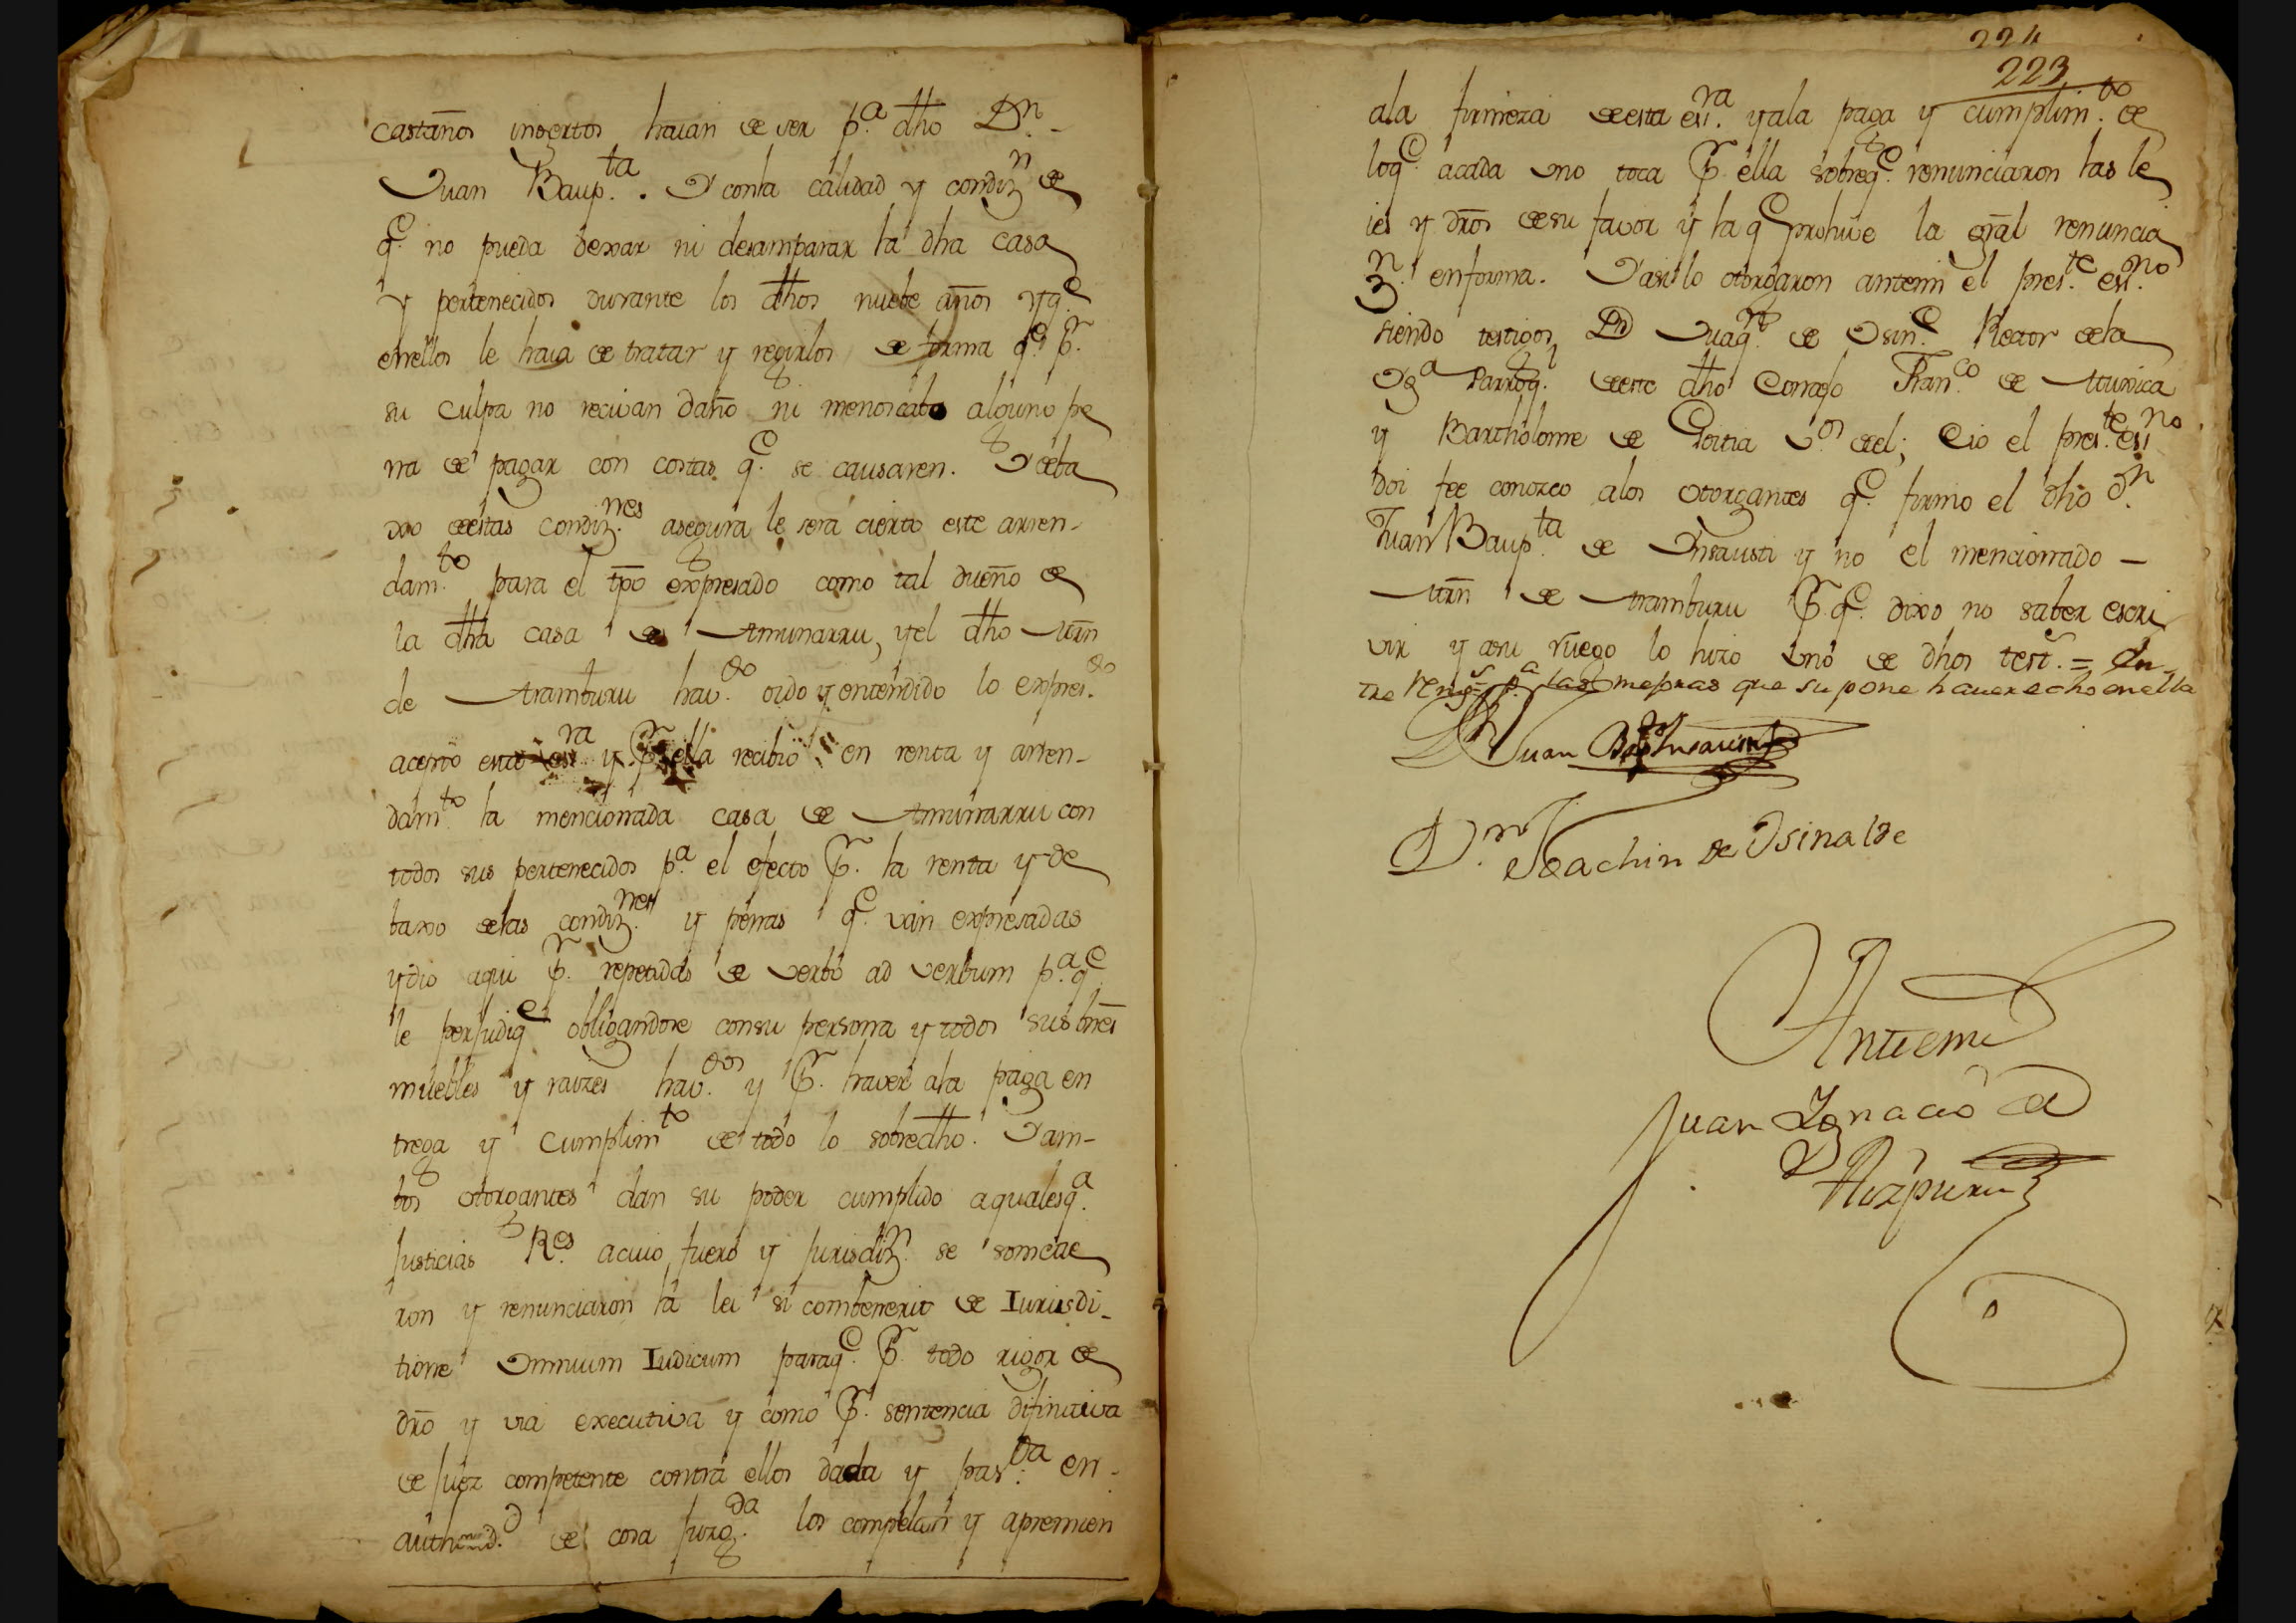 castaños insertos haian de ser p.ª dho D.n
Juan Baup.ta. Y conla calidad y condiz.n de
q.e no pueda dexar ni desamparar la dha casa
y pertenecidos durante los dhos nuebe años yq.e
enellos le haia de tratar y regirlos de forma q.e p.r
su culpa no recivan daño ni menoscabo alguno pe
na de pagar con costas q.e se causaren. Y deba
xo deestas condiz.nes asegura le será cierto este arren-
dam.to para el tpo expresado como tal dueño de
la dha casa de Amunarru, yel dho Mrn
de Aramburu hav.do oido y entendido lo expres.do
acepto esta es.ra y p.r ella recibio en renta y arren-
dam.to la mencionada casa de Amunarru con
todos sus pertenecidos p.ª el efecto p.r la renta y de
baxo delas condiz.nes y penas q.e van expresadas
ydio aqui p.r repetidas de verbo ad verbum p.ª q.e
le perjudiq.e obligandose consu persona y todos sus bnes
muebles y raizes hav.dos y p.r haver ala paga en
trega y cumplim.to de todo lo sobredho. Y am-
bos otorgantes dan su poder cumplido aqualesq.a
Justicias R.es acuio fuero y jurisdiz.n se somete
ron y renunciaron la lei si combenerit de Iurisdi-
tione Omnium Iudicum paraq.e p.r todo rigor de
dro y via executiva y como p.r sentencia difinitiva
de juez competente contra ellos dada y pas.da en
authorid.d de cosa juzg.da los compelan y apremien
224
223
ala firmeza deesta es.ra yala paga y cumplim.to de
loq.e acada uno toca p.r ella sobreq.e renunciaron las le
ies y dros desu favor y la q.e prohive la gral renuncia
z.n enforma. Y asi lo otorgaron antemi el pres.te es.no
siendo testigos D.n Juaq.n de Osin.e Rector dela
Ig.ª Parroq.l deeste dho Conzejo Fran.co de Munica
y Bartholome de Goitia v.os del; Eio el pres.te es.no
doi fee conozco alos otorgantes q.e firmo el dho D.n
Juan Baup.ta de Insausti y no el mencionado
Mrn de Aramburu p.r q.e dixo no saber escri
vir y asu ruego lo hizo uno de dhos test.s = En
tre reng.s p.a las mejoras que supone haverecho enella
D.n Juan Bap.ta Insausti
D.n Joachin de Osinalde
Antemi
Juan Ignacio de
Aizpuru